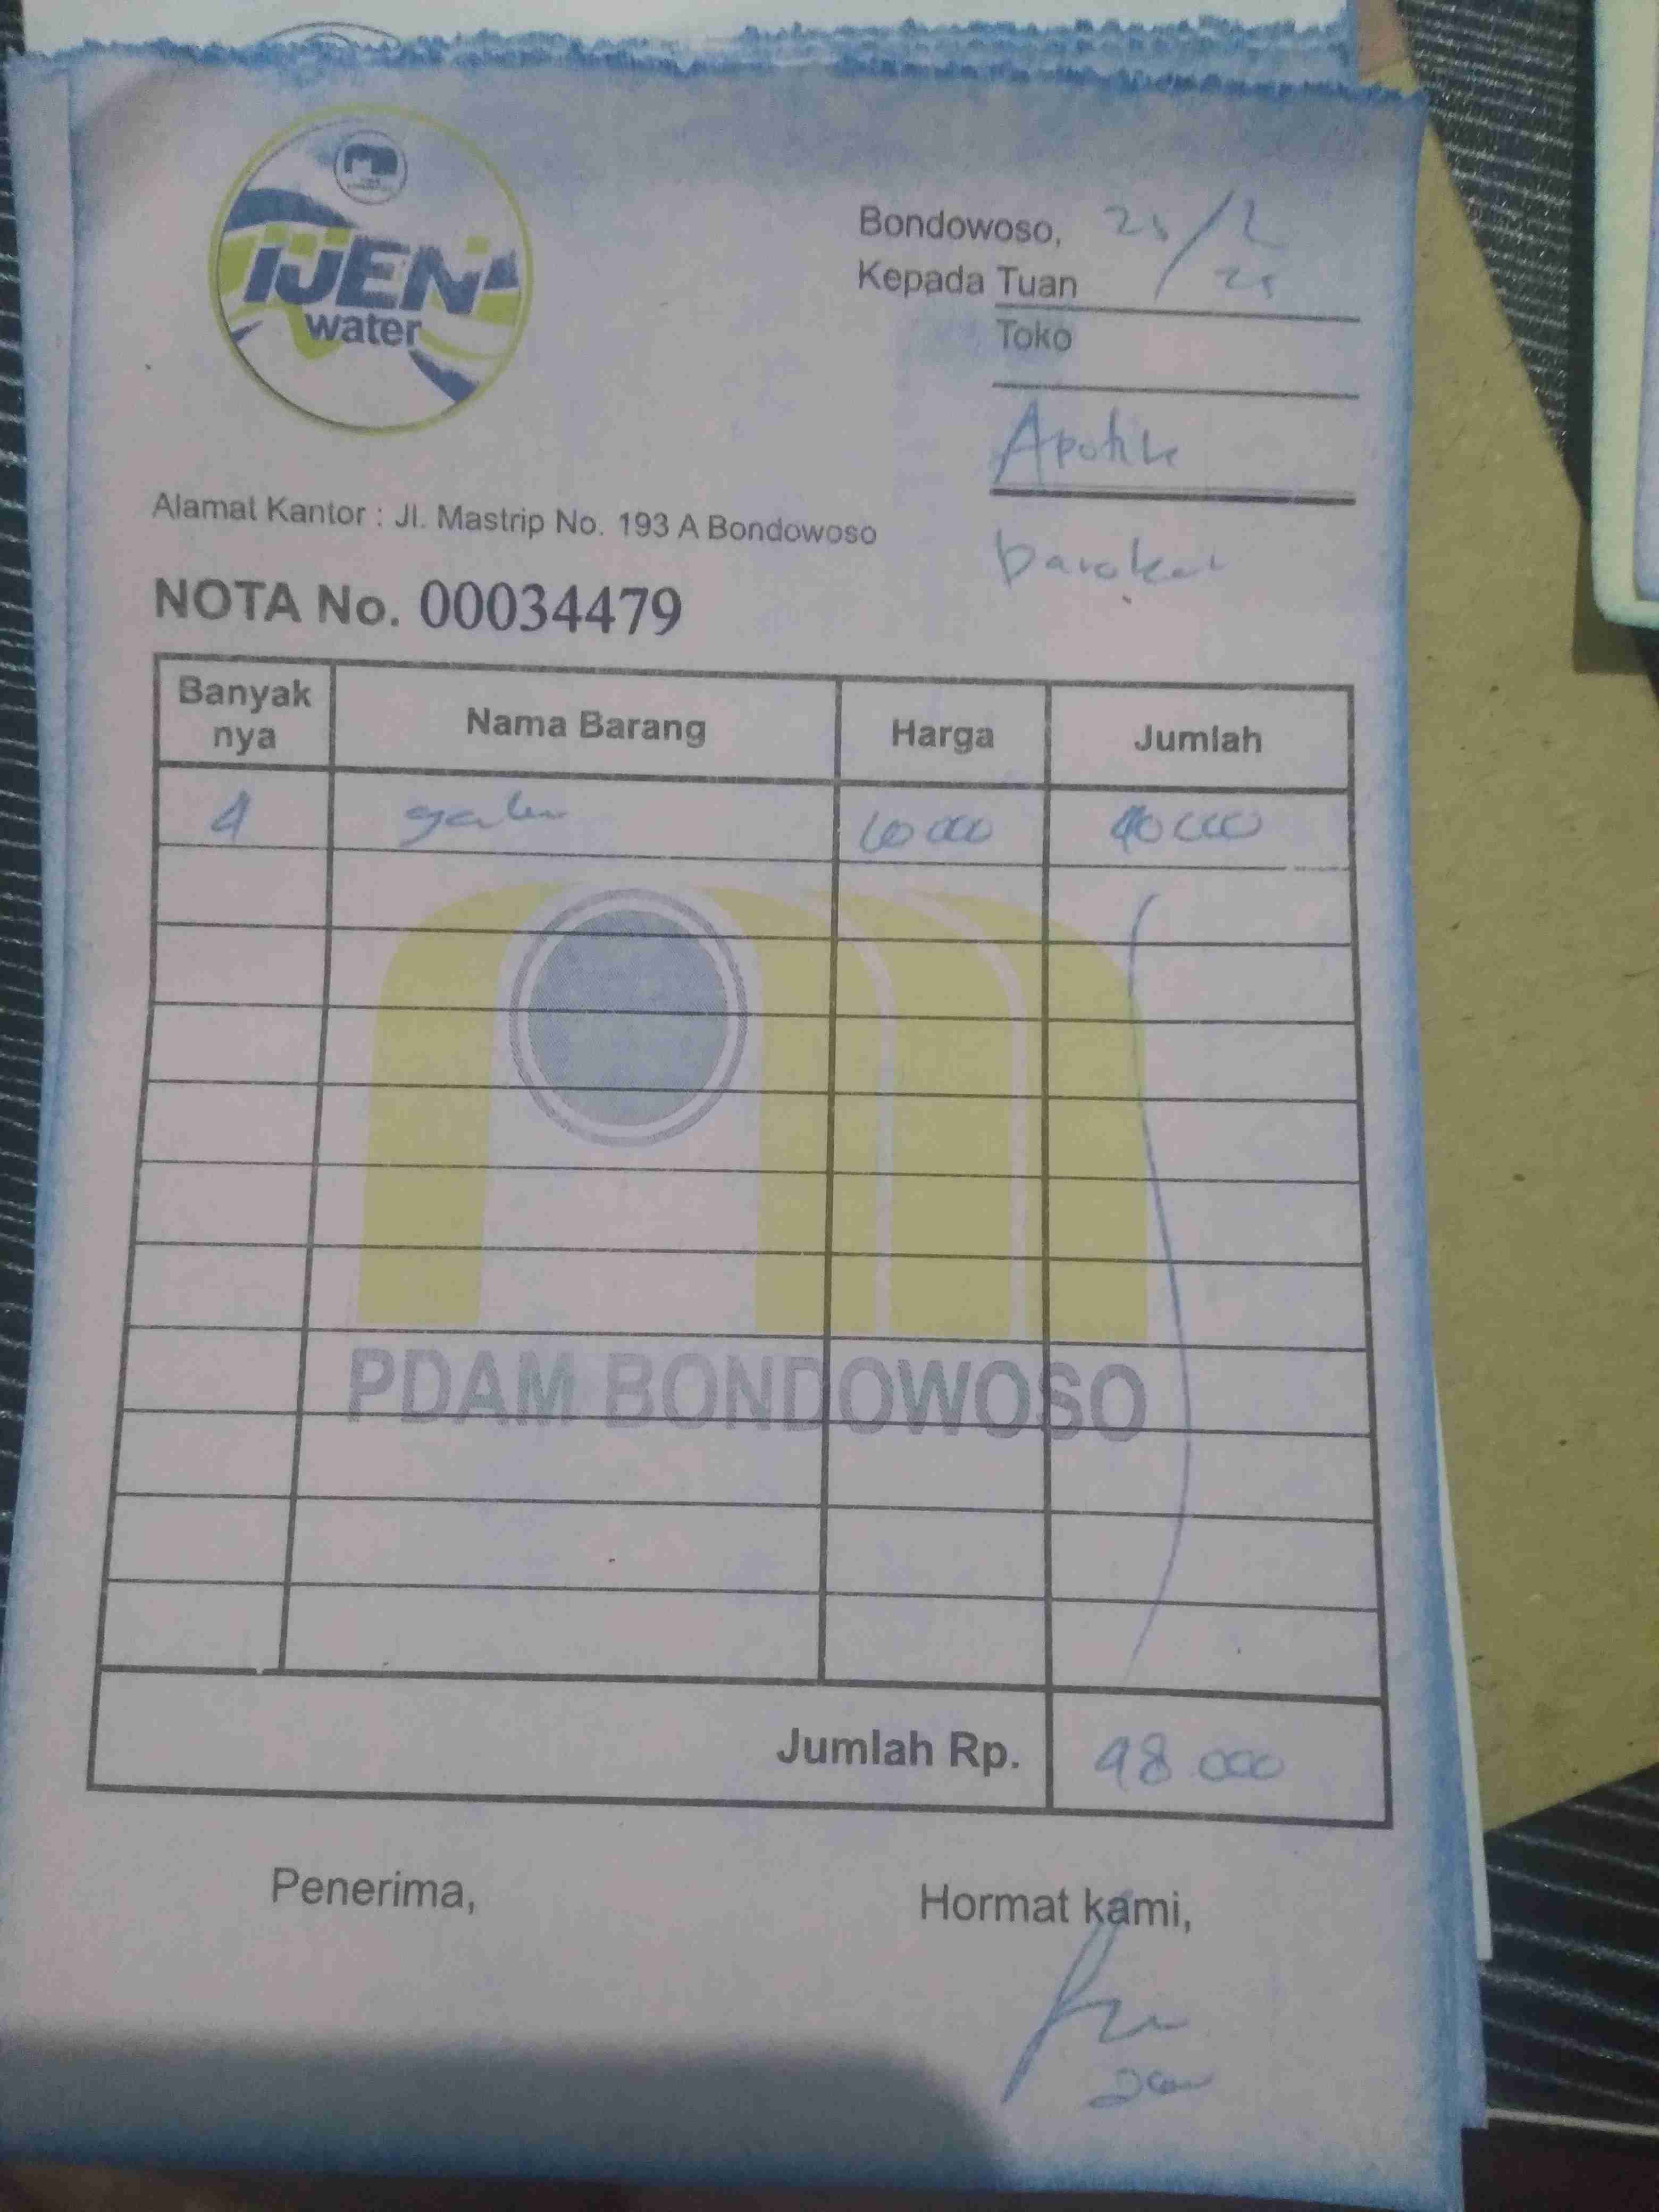 IJEN
water
Bondowoso, 25/2
25
Kepada Tuan
Toko
Apotik
barokah
Alamat Kantor : Jl. Mastrip No. 193 A Bondowoso
NOTA No. 00034479
Banyak nya Nama Barang Harga Jumlah
4 galon
PDAM BONDOWOSO
Jumlah Rp. 48 000
Penerima,
Hormat kami,